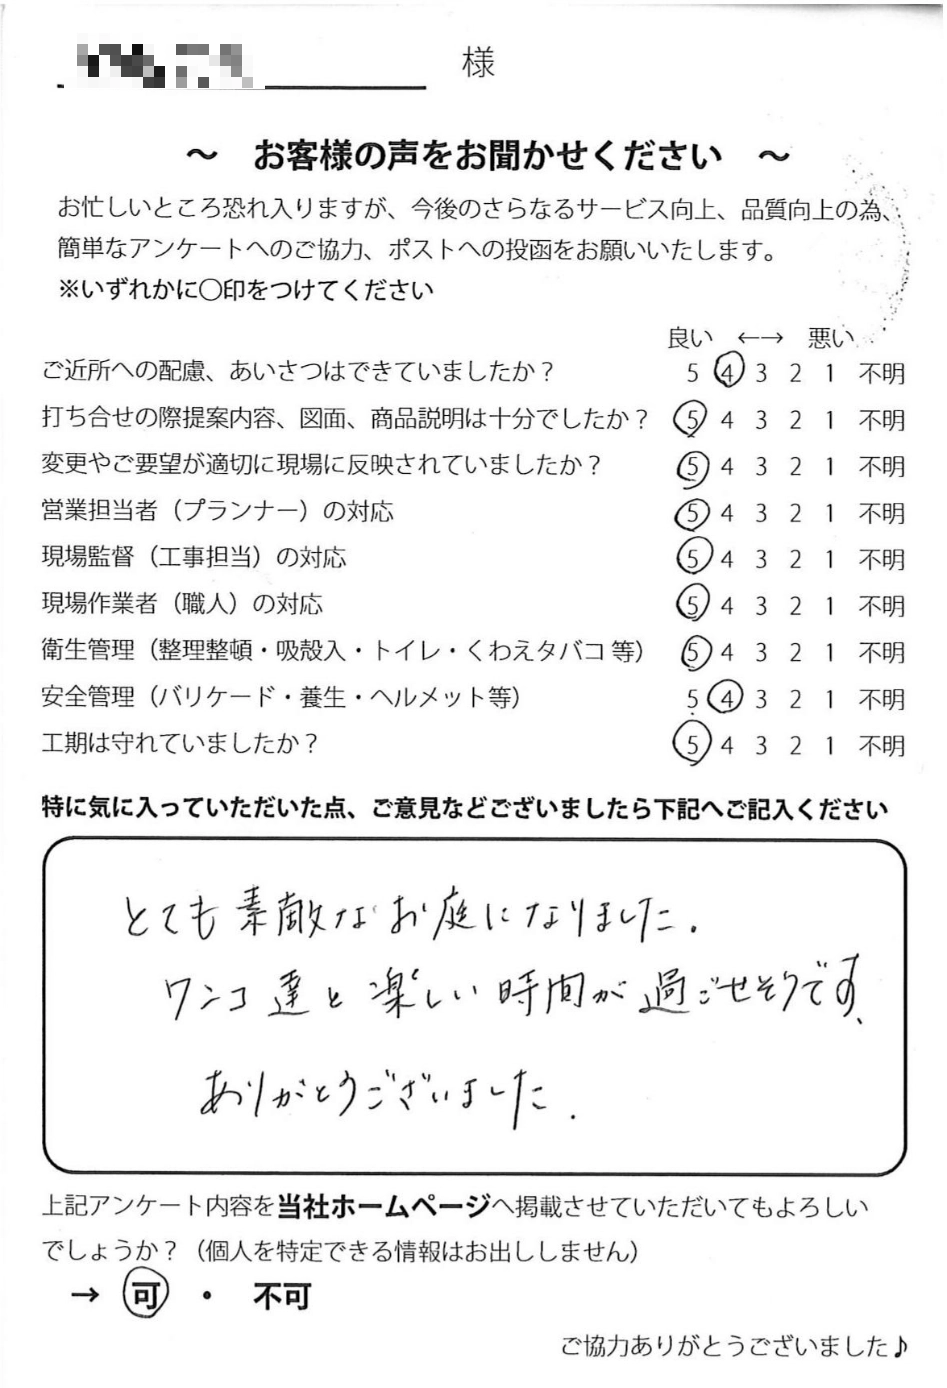 様
～　お客様の声をお聞かせください　～
お忙しいところ恐れ入りますが、今後のさらなるサービス向上、品質向上の為、
簡単なアンケートへのご協力、ポストへの投函をお願いいたします。
※いずれかに〇印をつけてください
良い　←→　悪い
ご近所への配慮、あいさつはできていましたか？ 5 4 3 2 1 不明
打ち合せの際提案内容、図面、商品説明は十分でしたか？ 5 4 3 2 1 不明
変更やご要望が適切に現場に反映されていましたか？ 5 4 3 2 1 不明
営業担当者（プランナー）の対応 5 4 3 2 1 不明
現場監督（工事担当）の対応 5 4 3 2 1 不明
現場作業者（職人）の対応 5 4 3 2 1 不明
衛生管理（整理整頓・吸殻入・トイレ・くわえタバコ 等） 5 4 3 2 1 不明
安全管理（バリケード・養生・ヘルメット等） 5 4 3 2 1 不明
工期は守れていましたか？ 5 4 3 2 1 不明
特に気に入っていただいた点、ご意見などございましたら下記へご記入ください
とても素敵なお庭になりました.
ワンコ達と楽しい時間が過ごせそうです、
ありがとうございました.
上記アンケート内容を当社ホームページへ掲載させていただいてもよろしい
でしょうか？（個人を特定できる情報はお出ししません）
→　可　・　不可
ご協力ありがとうございました♪